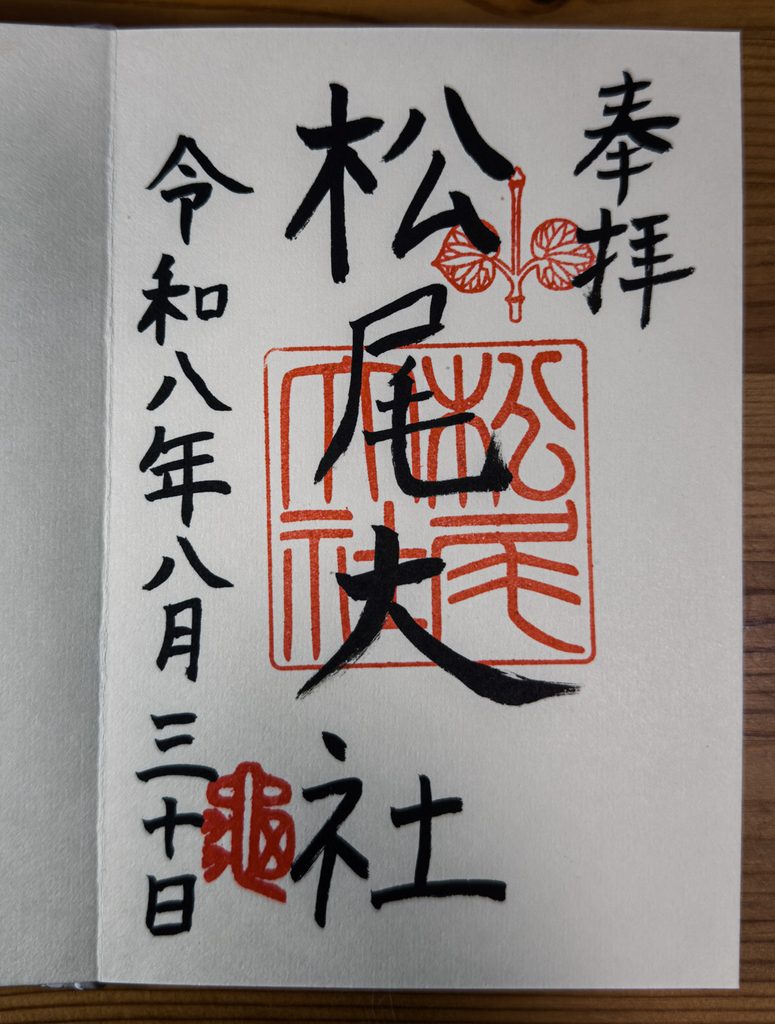 奉拝
松尾大社
松尾大社
龜
令和八年八月三十日